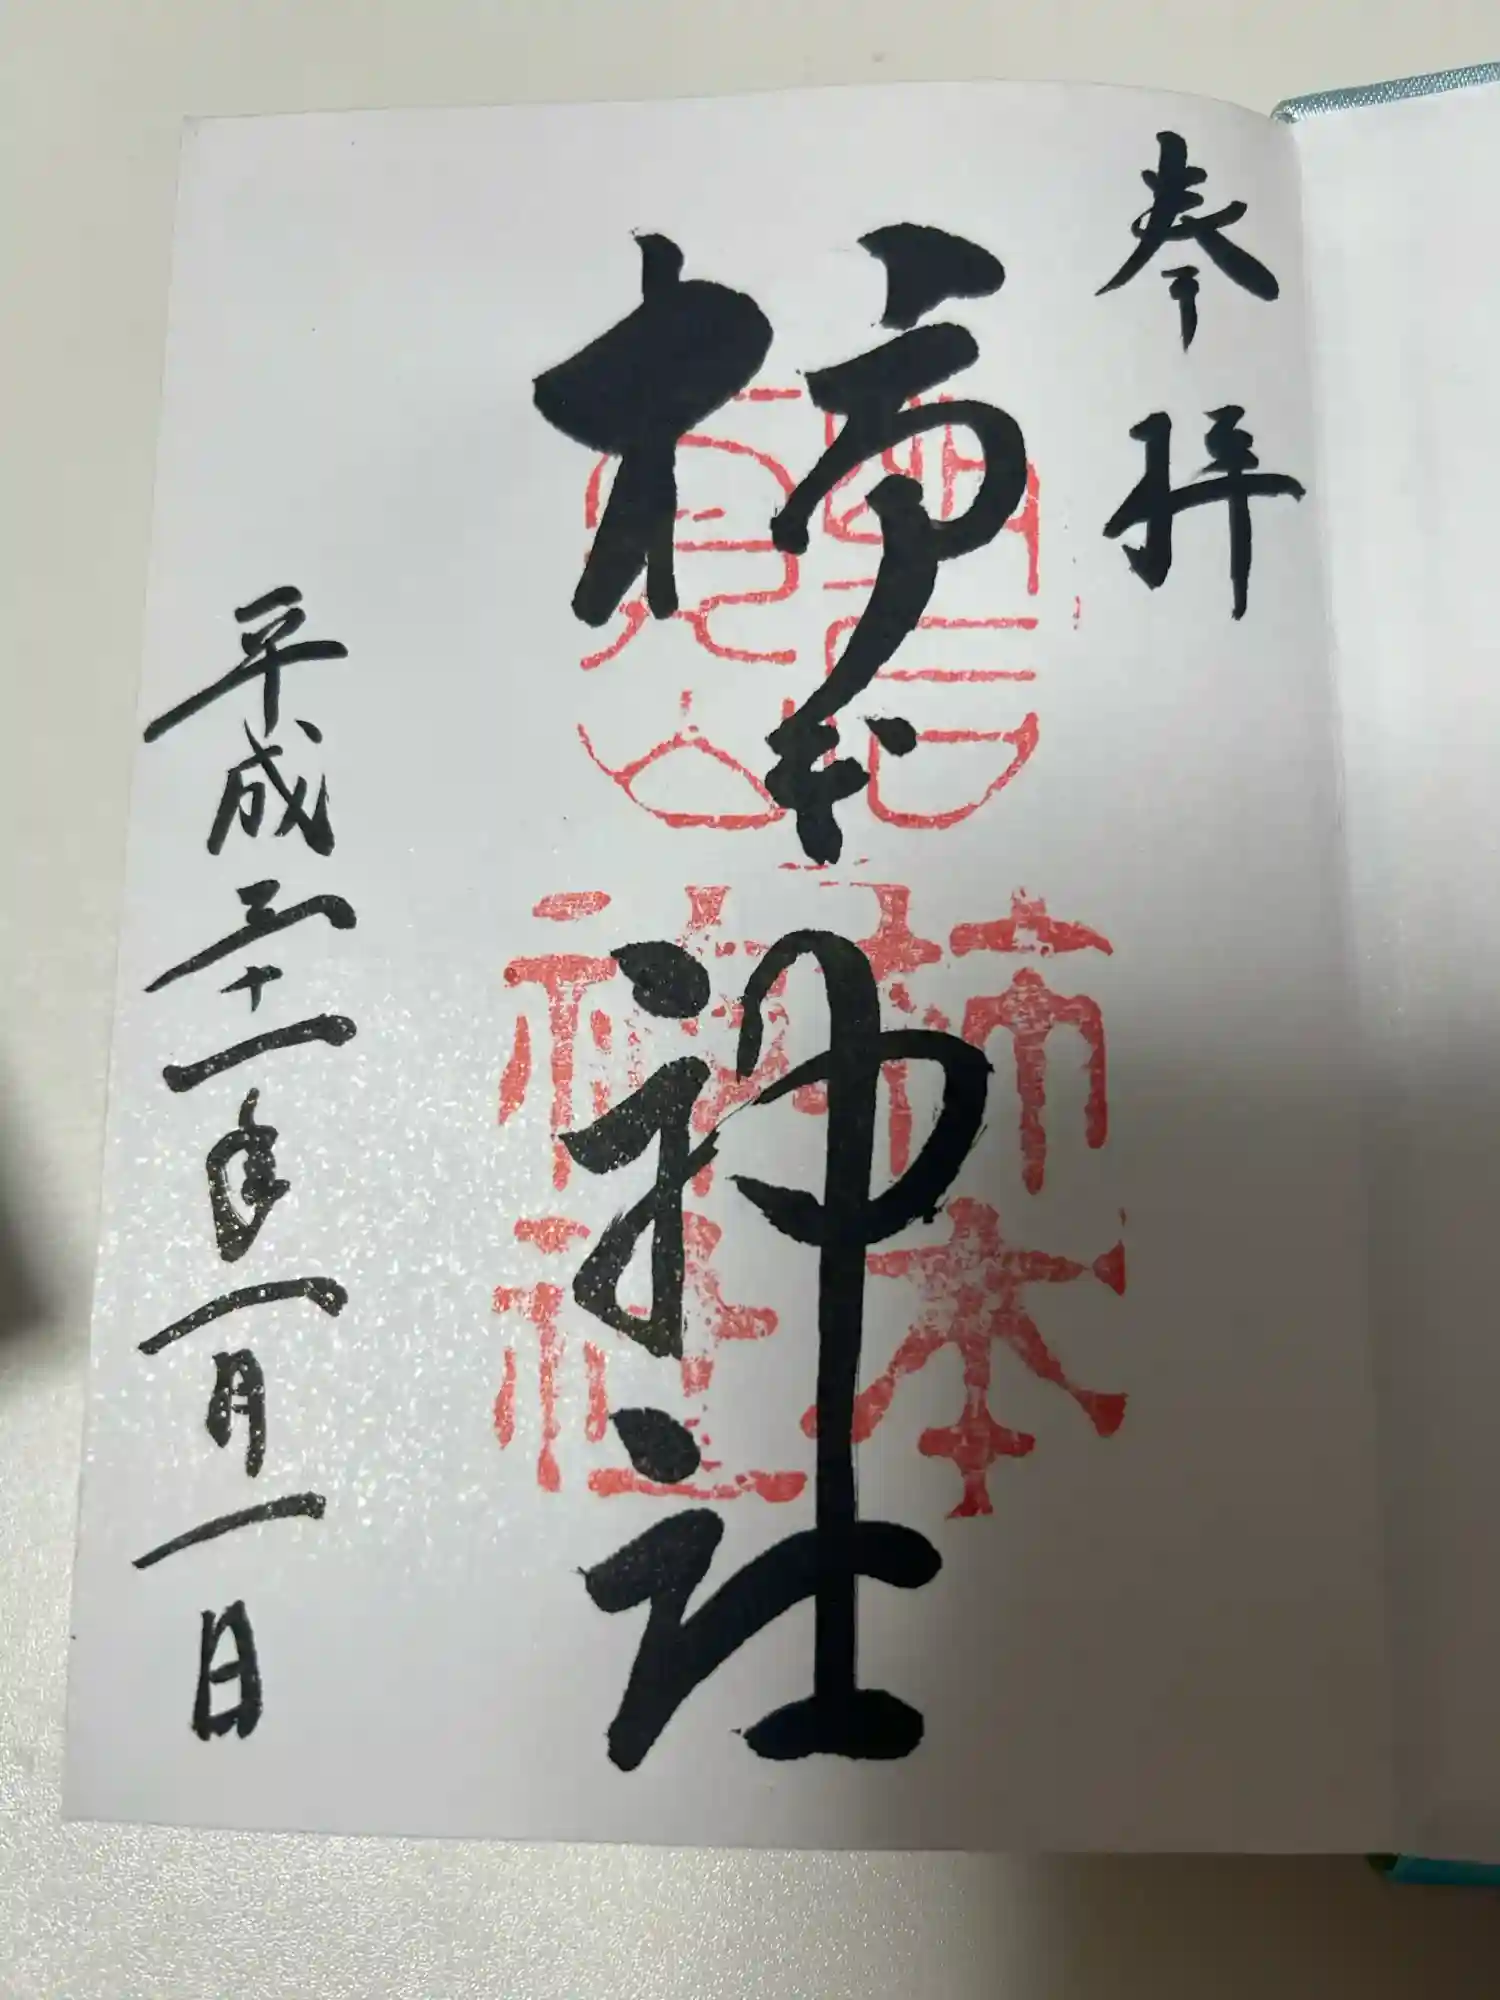 奉拝
柿本神社
柿本
神社
平成三十一年一月一日